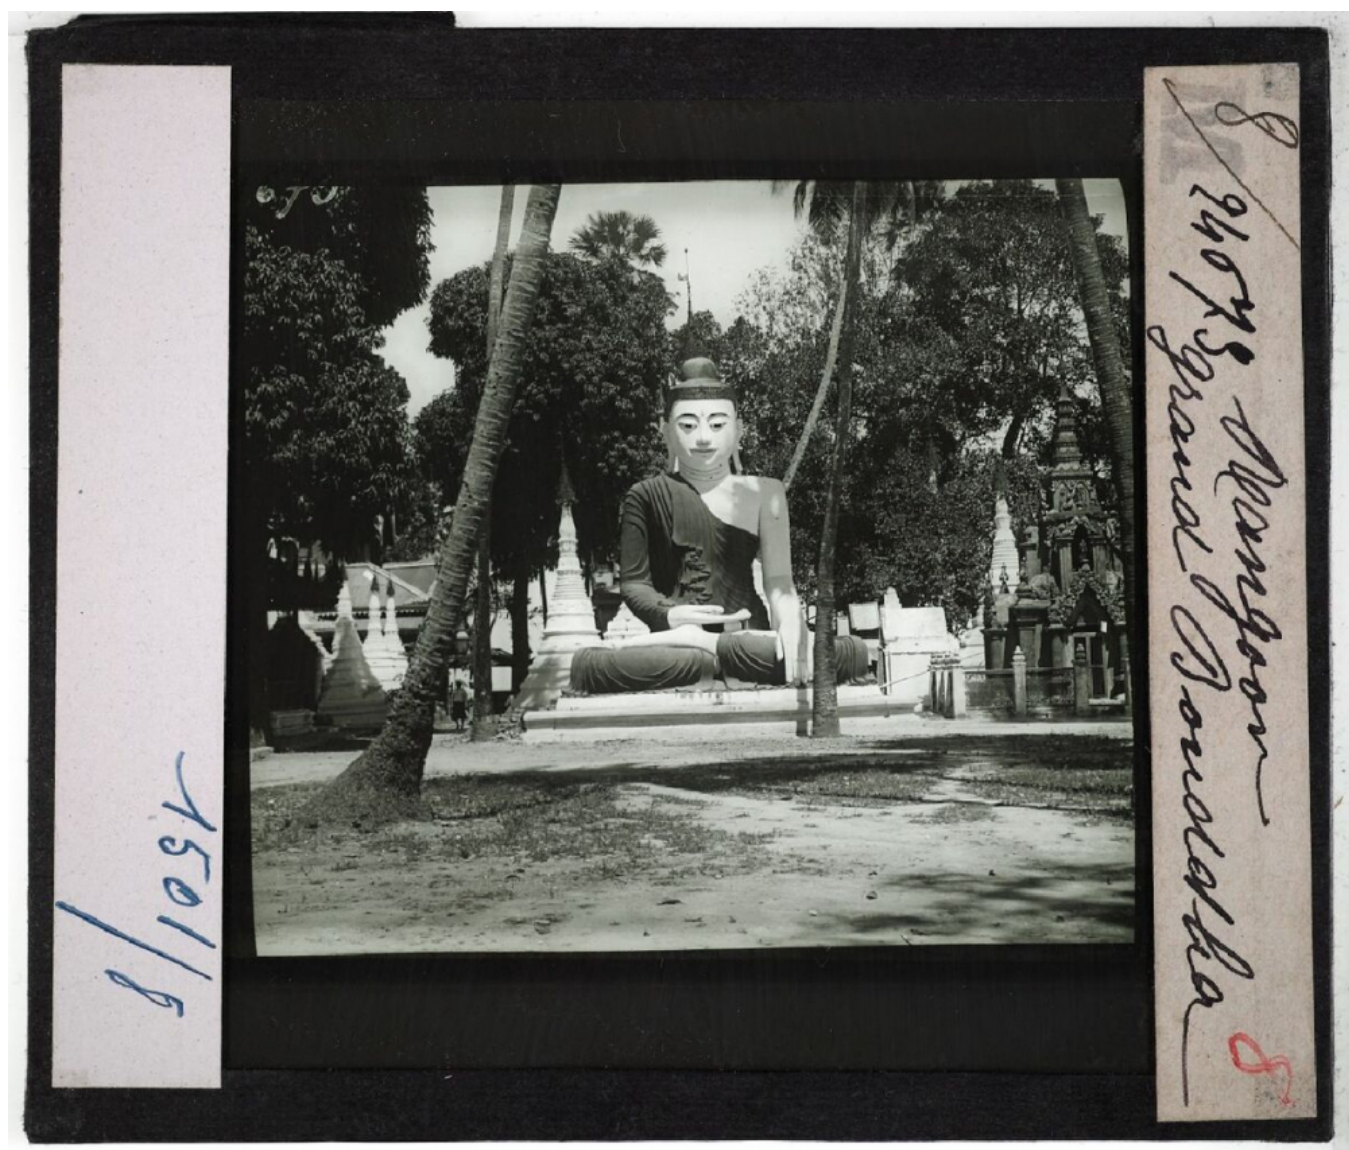 1501/8
8/
94073 Rangoon
grand Bouddha
8